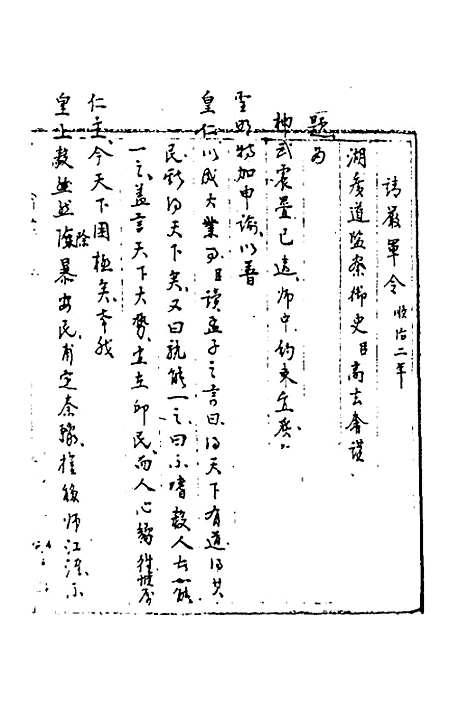 请严軍令 順治二年
湖廣道監察御史臣高去奢謹
題為
神武震疊已遠師中約束宜嚴
聖明特加申諭以普
皇仁以成大業事臣讀孟子之言曰得天下有道得其
民斯得天下矣又曰孰能一之曰不嗜殺人者能
一之蓋言天下大勢主在卯民而人心
仁主今天下困極矣幸我
皇上毅然除暴安民甫定秦豫師江淮不